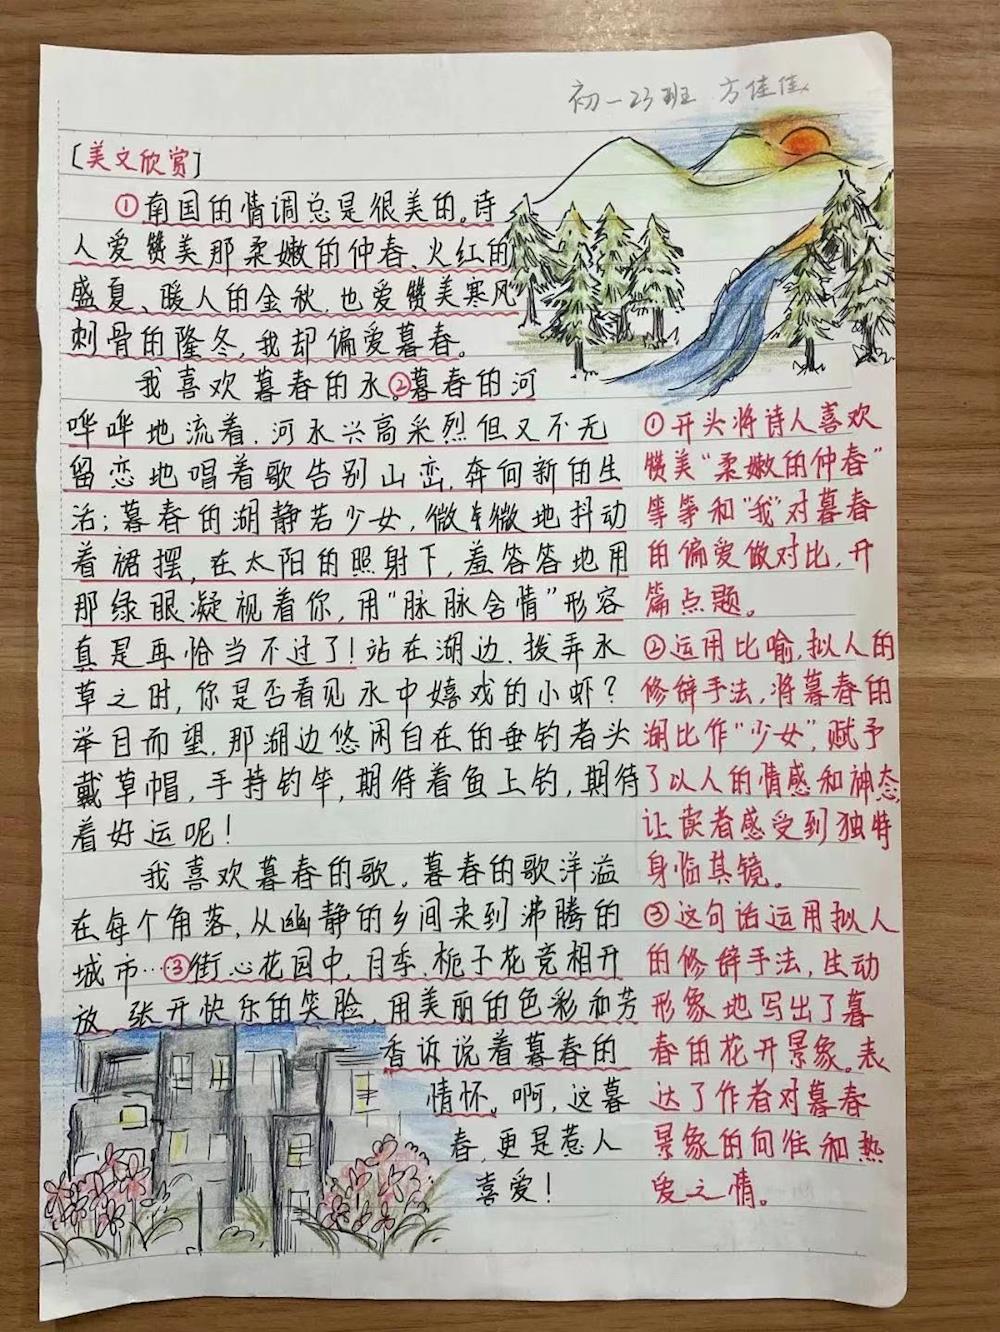 初一23班 方佳佳
[美文欣赏]
①南国的情调总是很美的。诗
人爱赞美那柔嫩的仲春、火红的
盛夏、暖人的金秋,也爱赞美寒风
刺骨的隆冬,我却偏爱暮春。
我喜欢暮春的水。②暮春的河
哗哗地流着,河水兴高采烈但又不无
留恋地唱着歌告别山峦,奔向新的生
活;暮春的湖静若少女,微微地抖动
着裙摆,在太阳的照射下,羞答答地用
那绿眼凝视着你,用“脉脉含情”形容
真是再恰当不过了!站在湖边,拨弄水
草之时,你是否看见水中嬉戏的小虾?
举目而望,那湖边悠闲自在的垂钓者头
戴草帽,手持钓竿,期待着鱼上钓,期待
着好运呢!
我喜欢暮春的歌,暮春的歌洋溢
在每个角落,从幽静的乡间来到沸腾的
城市…③街心花园中,月季、栀子花竞相开
放,张开快乐的笑脸,用美丽的色彩和芳
香诉说着暮春的
情怀。啊,这暮
春,更是惹人
喜爱!
①开头将诗人喜欢
赞美“柔嫩的仲春”
等等和“我”对暮春
的偏爱做对比,开
篇点题。
②运用比喻,拟人的
修辞手法,将暮春的
湖比作“少女”,赋予
了以人的情感和神态,
让读者感受到独特
身临其镜。
③这句话运用拟人
的修辞手法,生动
形象地写出了暮
春的花开景象。表
达了作者对暮春
景象的向往和热
爱之情。